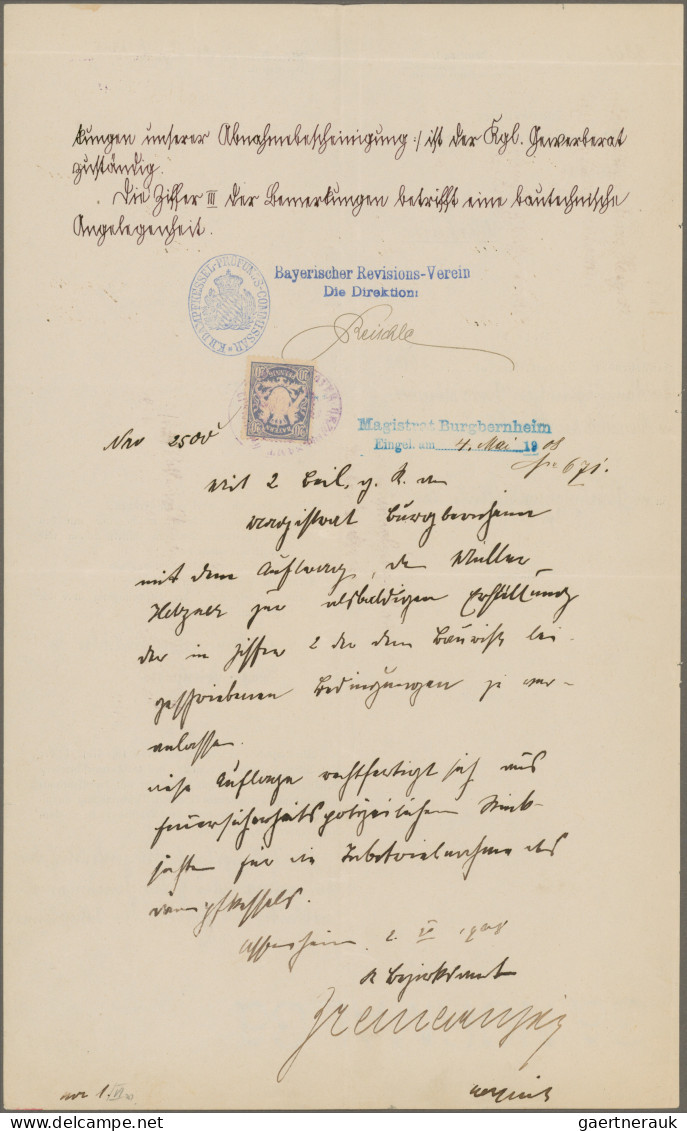 kungen unserer Abnahmebescheinigung :/ ist der Kgl. Gewerberat
zuständig.
Die Ziffer III der Bemerkungen betrifft eine bautechnische
Angelegenheit.
K.B. DAMPFKESSEL-PRÜFUNGS-COMMISSÄR
Bayerischer Revisions-Verein
Die Direktion:
Reischle
Magistrat Burgbernheim
Eingel. am 4. Mai 1908
Nro 2500
No 671.
Mit 2 Beil. g. R. an
Magistrat Burgbernheim
mit dem Auftrag, den Müller
zur alsbaldigen Erfüllung
der in Ziffer 2 der dem Baurisse bei-
geschriebenen Bedingungen zu ver-
anlassen.
Diese Auflage rechtfertigt sich aus
feuersicherheitspolizeilichen Rück-
sichten für die Inbetriebnahme des
Dampfkessels.
Uffenheim, 2. V. 1908
K. Bezirksamt
gaertnerauk_©